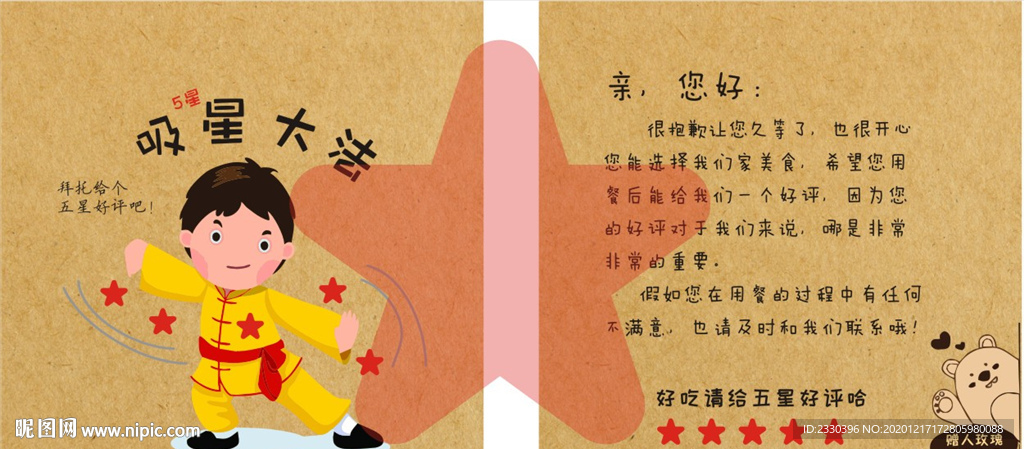 5星
吸星大法
拜托给个
五星好评吧！
昵图网 www.nipic.com
亲，您好：
很抱歉让您久等了，也很开心
您能选择我们家美食，希望您用
餐后能给我们一个好评，因为您
的好评对于我们来说，哪是非常
非常的重要。
假如您在用餐的过程中有任何
不满意，也请及时和我们联系哦！
好吃请给五星好评哈
ID:2330396 NO:20201217172805980088
赠人玫瑰